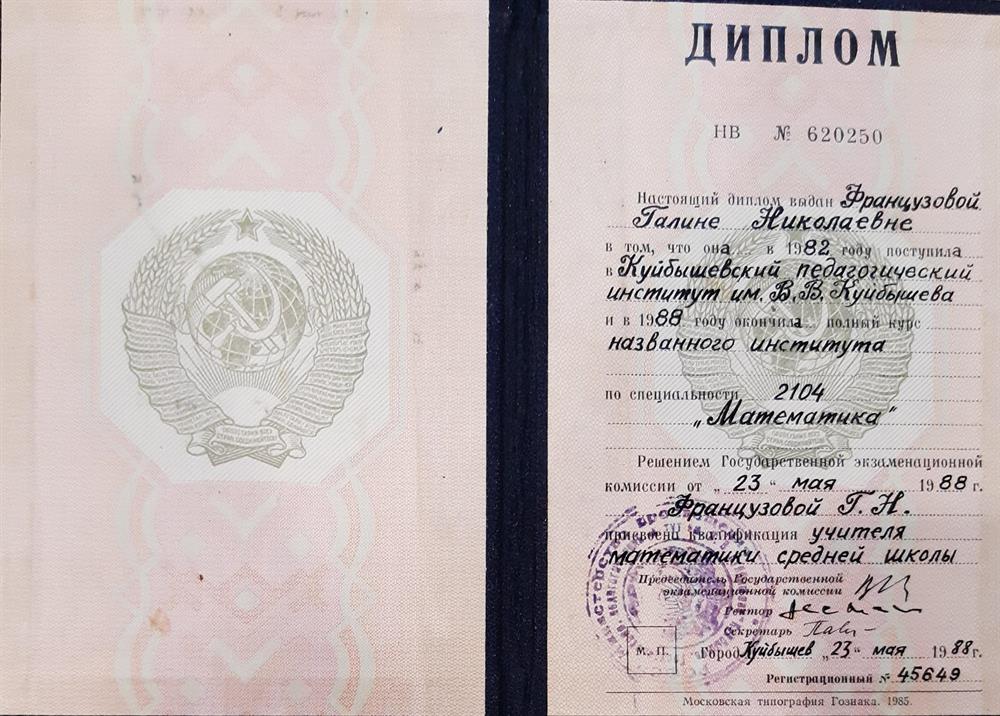 ДИПЛОМ
НВ № 620250
Настоящий диплом выдан Французовой
Галине Николаевне
в том, что она в 1982 году поступила
в Куйбышевский педагогический
институт им. В.В. Куйбышева
и в 1988 году окончила полный курс
названного института
по специальности 2104
„Математика"
Решением Государственной экзаменационной
комиссии от „23" мая 1988 г.
Французовой Г. Н.
присвоена квалификация учителя
математики средней школы
Председатель Государственной
экзаменационной комиссии
Ректор
Секретарь
М. П.
Город Куйбышев „23" мая 1988 г.
Регистрационный № 45649
Московская типография Гознака. 1985.